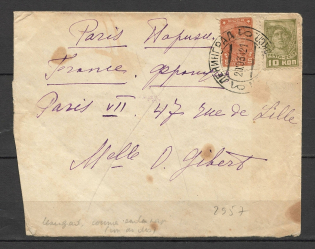 Paris Париж
France. Франц
Paris VII. 47 rue de Lille
Melle D. Gibert
ЛЕНИНГРАД
10 КОП
7957